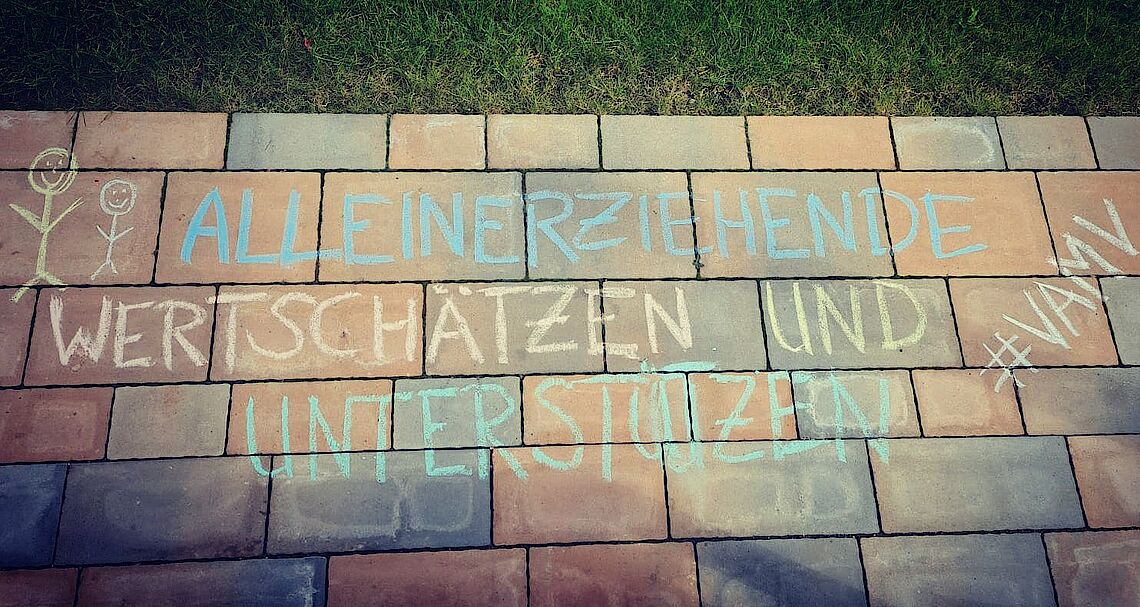 ALLEINERZIEHENDE
WERTSCHÄTZEN UND
UNTERSTÜTZEN
#VAMV